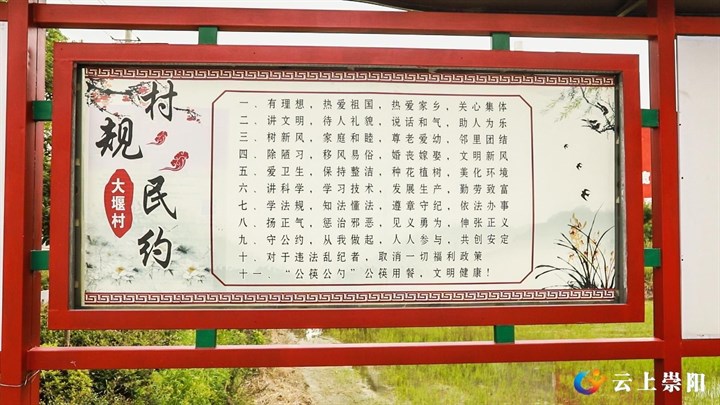 村规民约
大堰村
一．有理想，热爱祖国，热爱家乡，关心集体
二．讲文明，待人礼貌，说话和气，助人为乐
三．树新风，家庭和睦，尊老爱幼，邻里团结
四．除陋习，移风易俗，婚丧嫁娶，文明新风
五．爱卫生，保持整洁，种花植树，美化环境
六．讲科学，学习技术，发展生产，勤劳致富
七．学法规，知法懂法，遵章守纪，依法办事
八．扬正气，惩治邪恶，见义勇为，伸张正义
九．守公约，从我做起，人人参与，共创安定
十．对于违法乱纪者，取消一切福利政策
十一．“公筷公勺”公筷用餐，文明健康！
云上崇阳